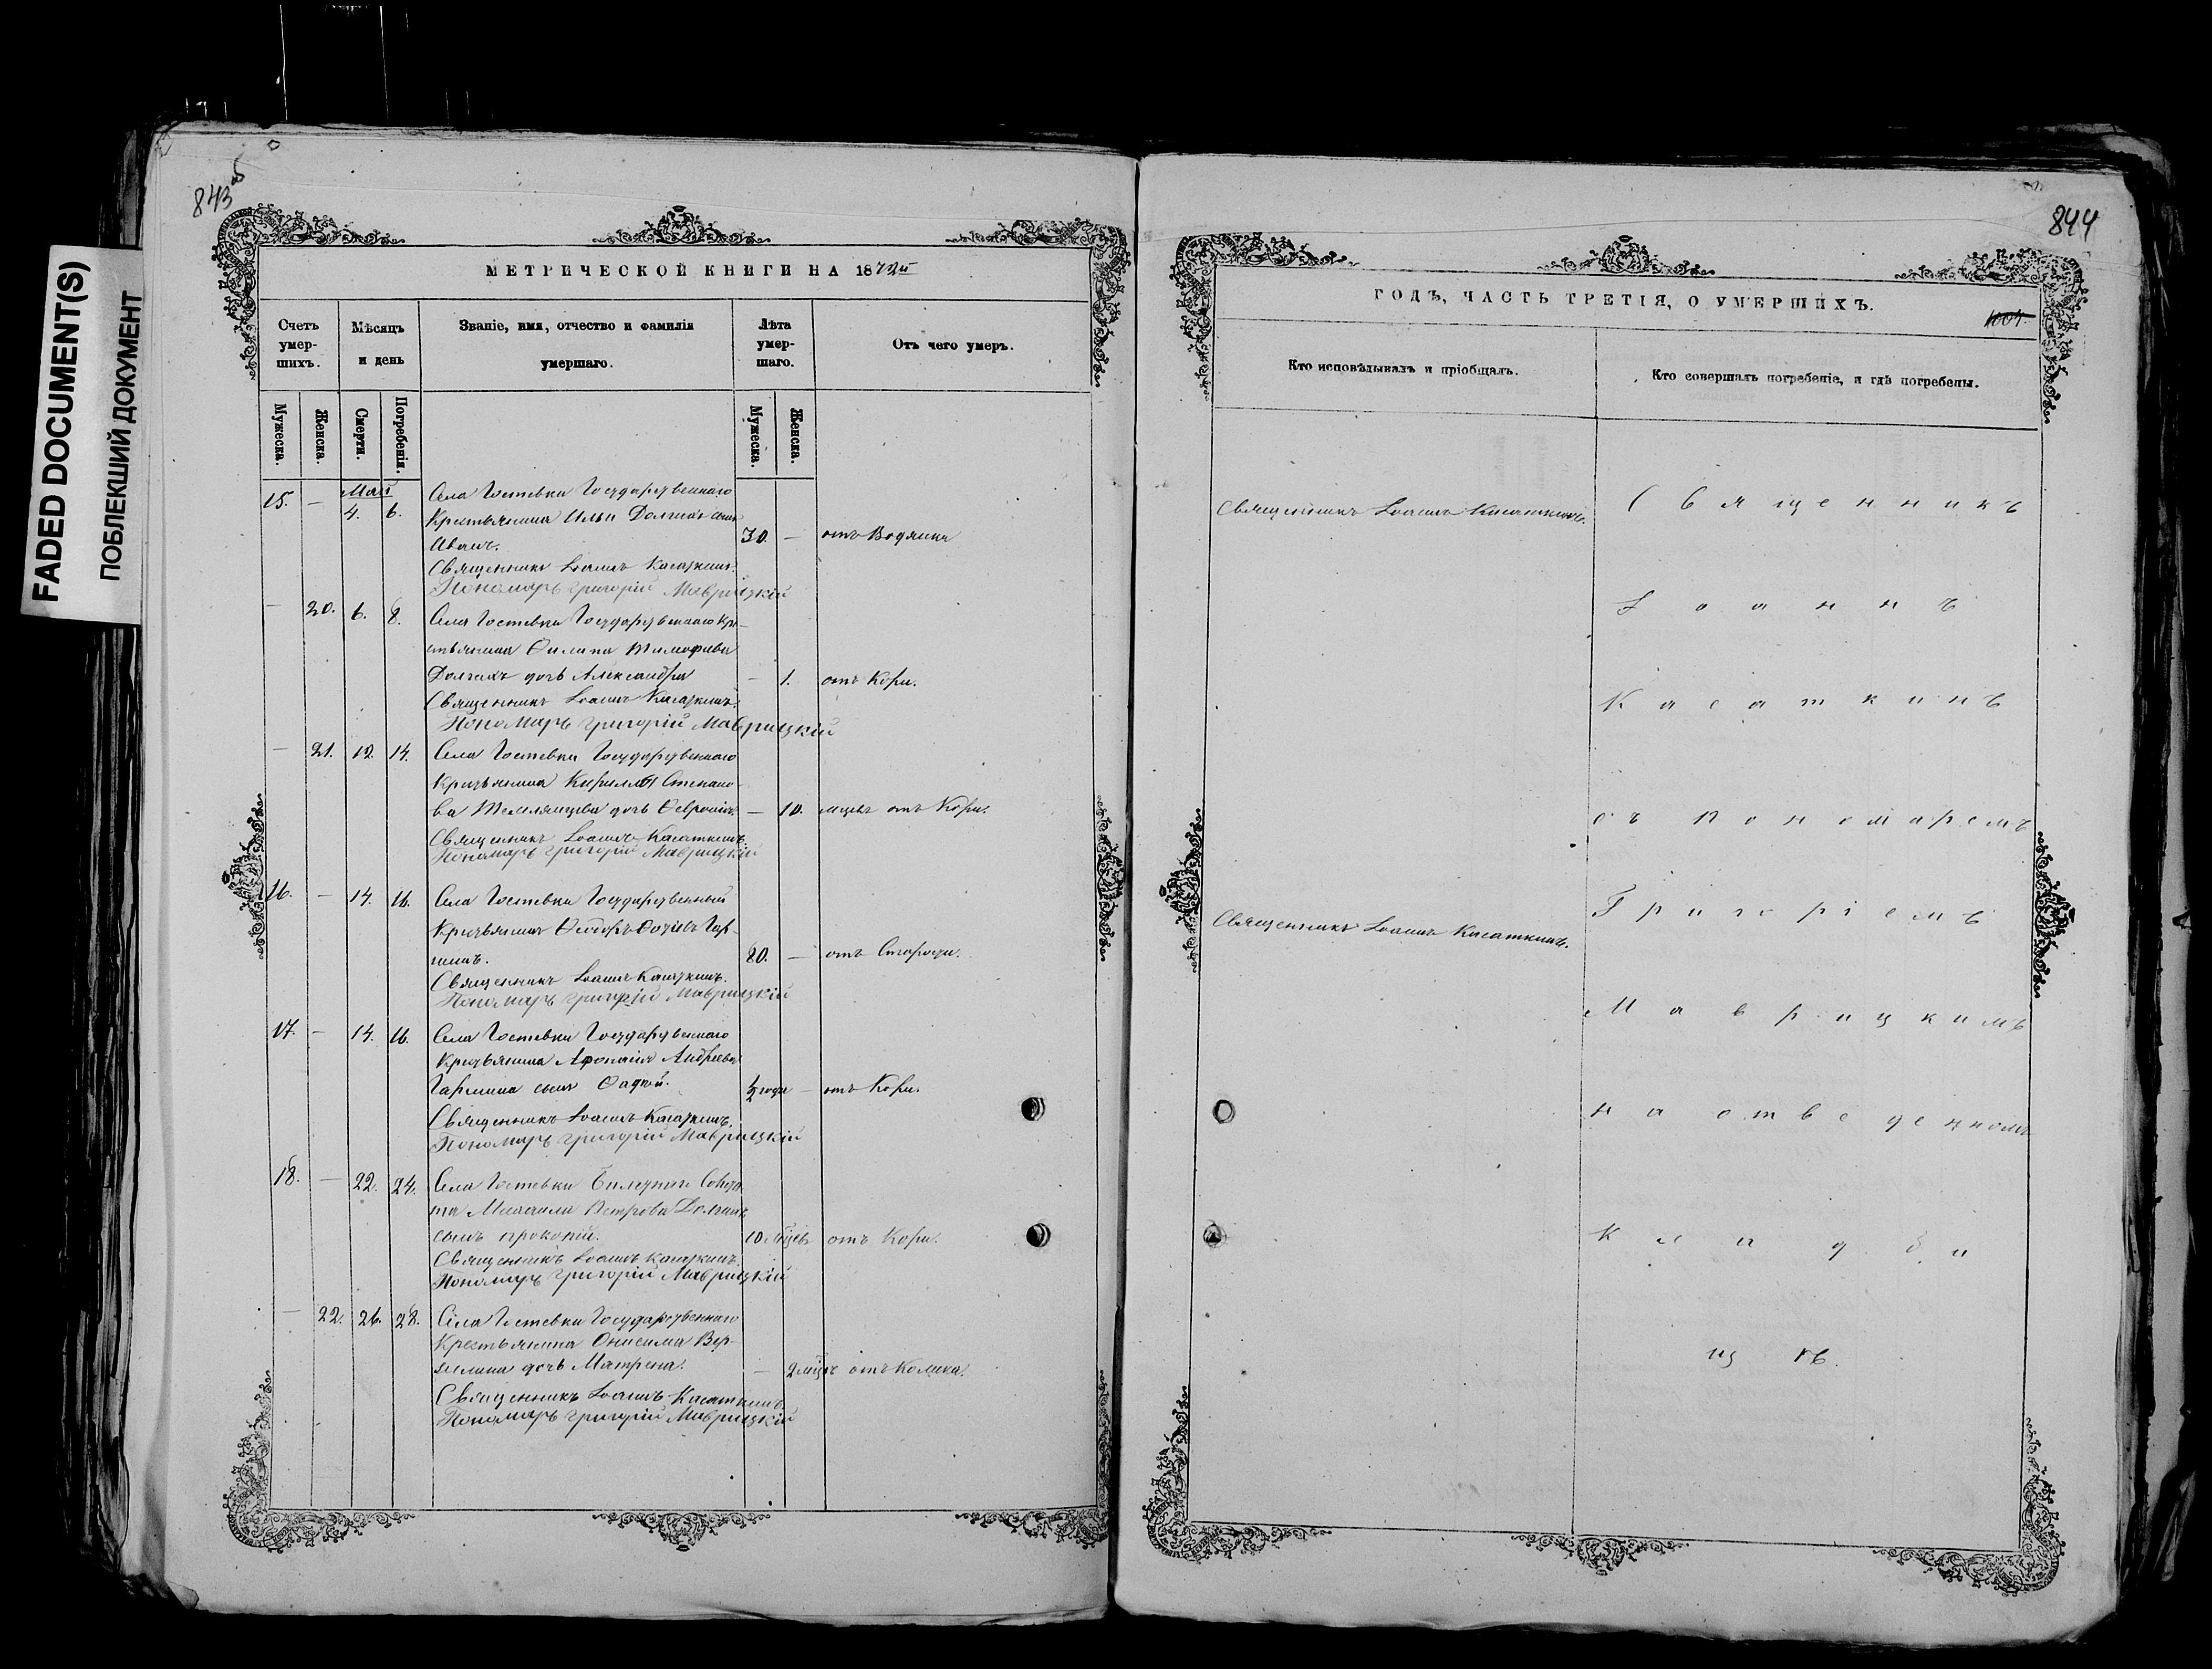 FADED DOCUMENT(S)
ПОБЛЕКШИЙ ДОКУМЕНТ
843 об
МЕТРИЧЕСКОЙ КНИГИ НА 1872й
Счетъ умер-шихъ.
Мѣсяцъ и день
Званіе, имя, отчество и фамилія умершаго.
Лѣта умер-шаго.
Отъ чего умеръ.
Мужеска.
Женска.
Смерти.
Погребенія.
Мужеска.
Женска.
Май
15. — 4. 6. Села Гостевки Государственнаго
Крестьянина Ильи Долгихъ сынъ
Иванъ. 30. — отъ Водянки
Священникъ Іоаннъ Касаткинъ.
Пономарь Григорій Маврицкій
— 20. 6. 8. Села Гостевки Государственнаго Кре-
стьянина Филипа Тимофива
Долгихъ дочь Александра — 1. отъ Кори.
Священникъ Іоаннъ Касаткинъ.
Пономарь Григорій Маврицкій
— 21. 12. 14. Села Гостевки Государственнаго
Крестьянина Кирилла Степано-
ва дочь — 10. мцевъ отъ Кори.
Священникъ Іоаннъ Касаткинъ.
Пономарь Григорій Маврицкій
16. — 14. 16. Села Гостевки Государственный
Крестьянинъ Ѳеодоръ
80. — отъ Старости.
Священникъ Іоаннъ Касаткинъ.
Пономарь Григорій Маврицкій
17. — 14. 16. Села Гостевки Государственнаго
Крестьянина Андреева
сынъ Ѳадѣй. ½ года — отъ Кори.
Священникъ Іоаннъ Касаткинъ.
Пономарь Григорій Маврицкій
18. — 22. 24. Села Гостевки Солда
та Михаила Петрова Долгихъ
сынъ прокопій. 10 мцевъ отъ Кори.
Священникъ Іоаннъ Касаткинъ.
Пономарь Григорій Маврицкій
— 22. 26. 28. Села Гостевки Государственнаго
Крестьянина Онисима
дочь Матрена. — 2 мцъ отъ Колики.
Священникъ Іоаннъ Касаткинъ
Пономарь Григорій Маврицкій
844
ГОДЪ, ЧАСТЬ ТРЕТІЯ, О УМЕРШИХЪ.
1004.
Кто исповѣдывалъ и пріобщалъ.
Кто совершалъ погребеніе, и гдѣ погребены.
Священникъ Іоаннъ Касаткинъ.
Священникъ
Іоаннъ
Касаткинъ
съ пономаремъ
Священникъ Іоаннъ Касаткинъ.
Григоріемъ
Маврицкимъ
на отведенномъ
Кладби
щѣ.